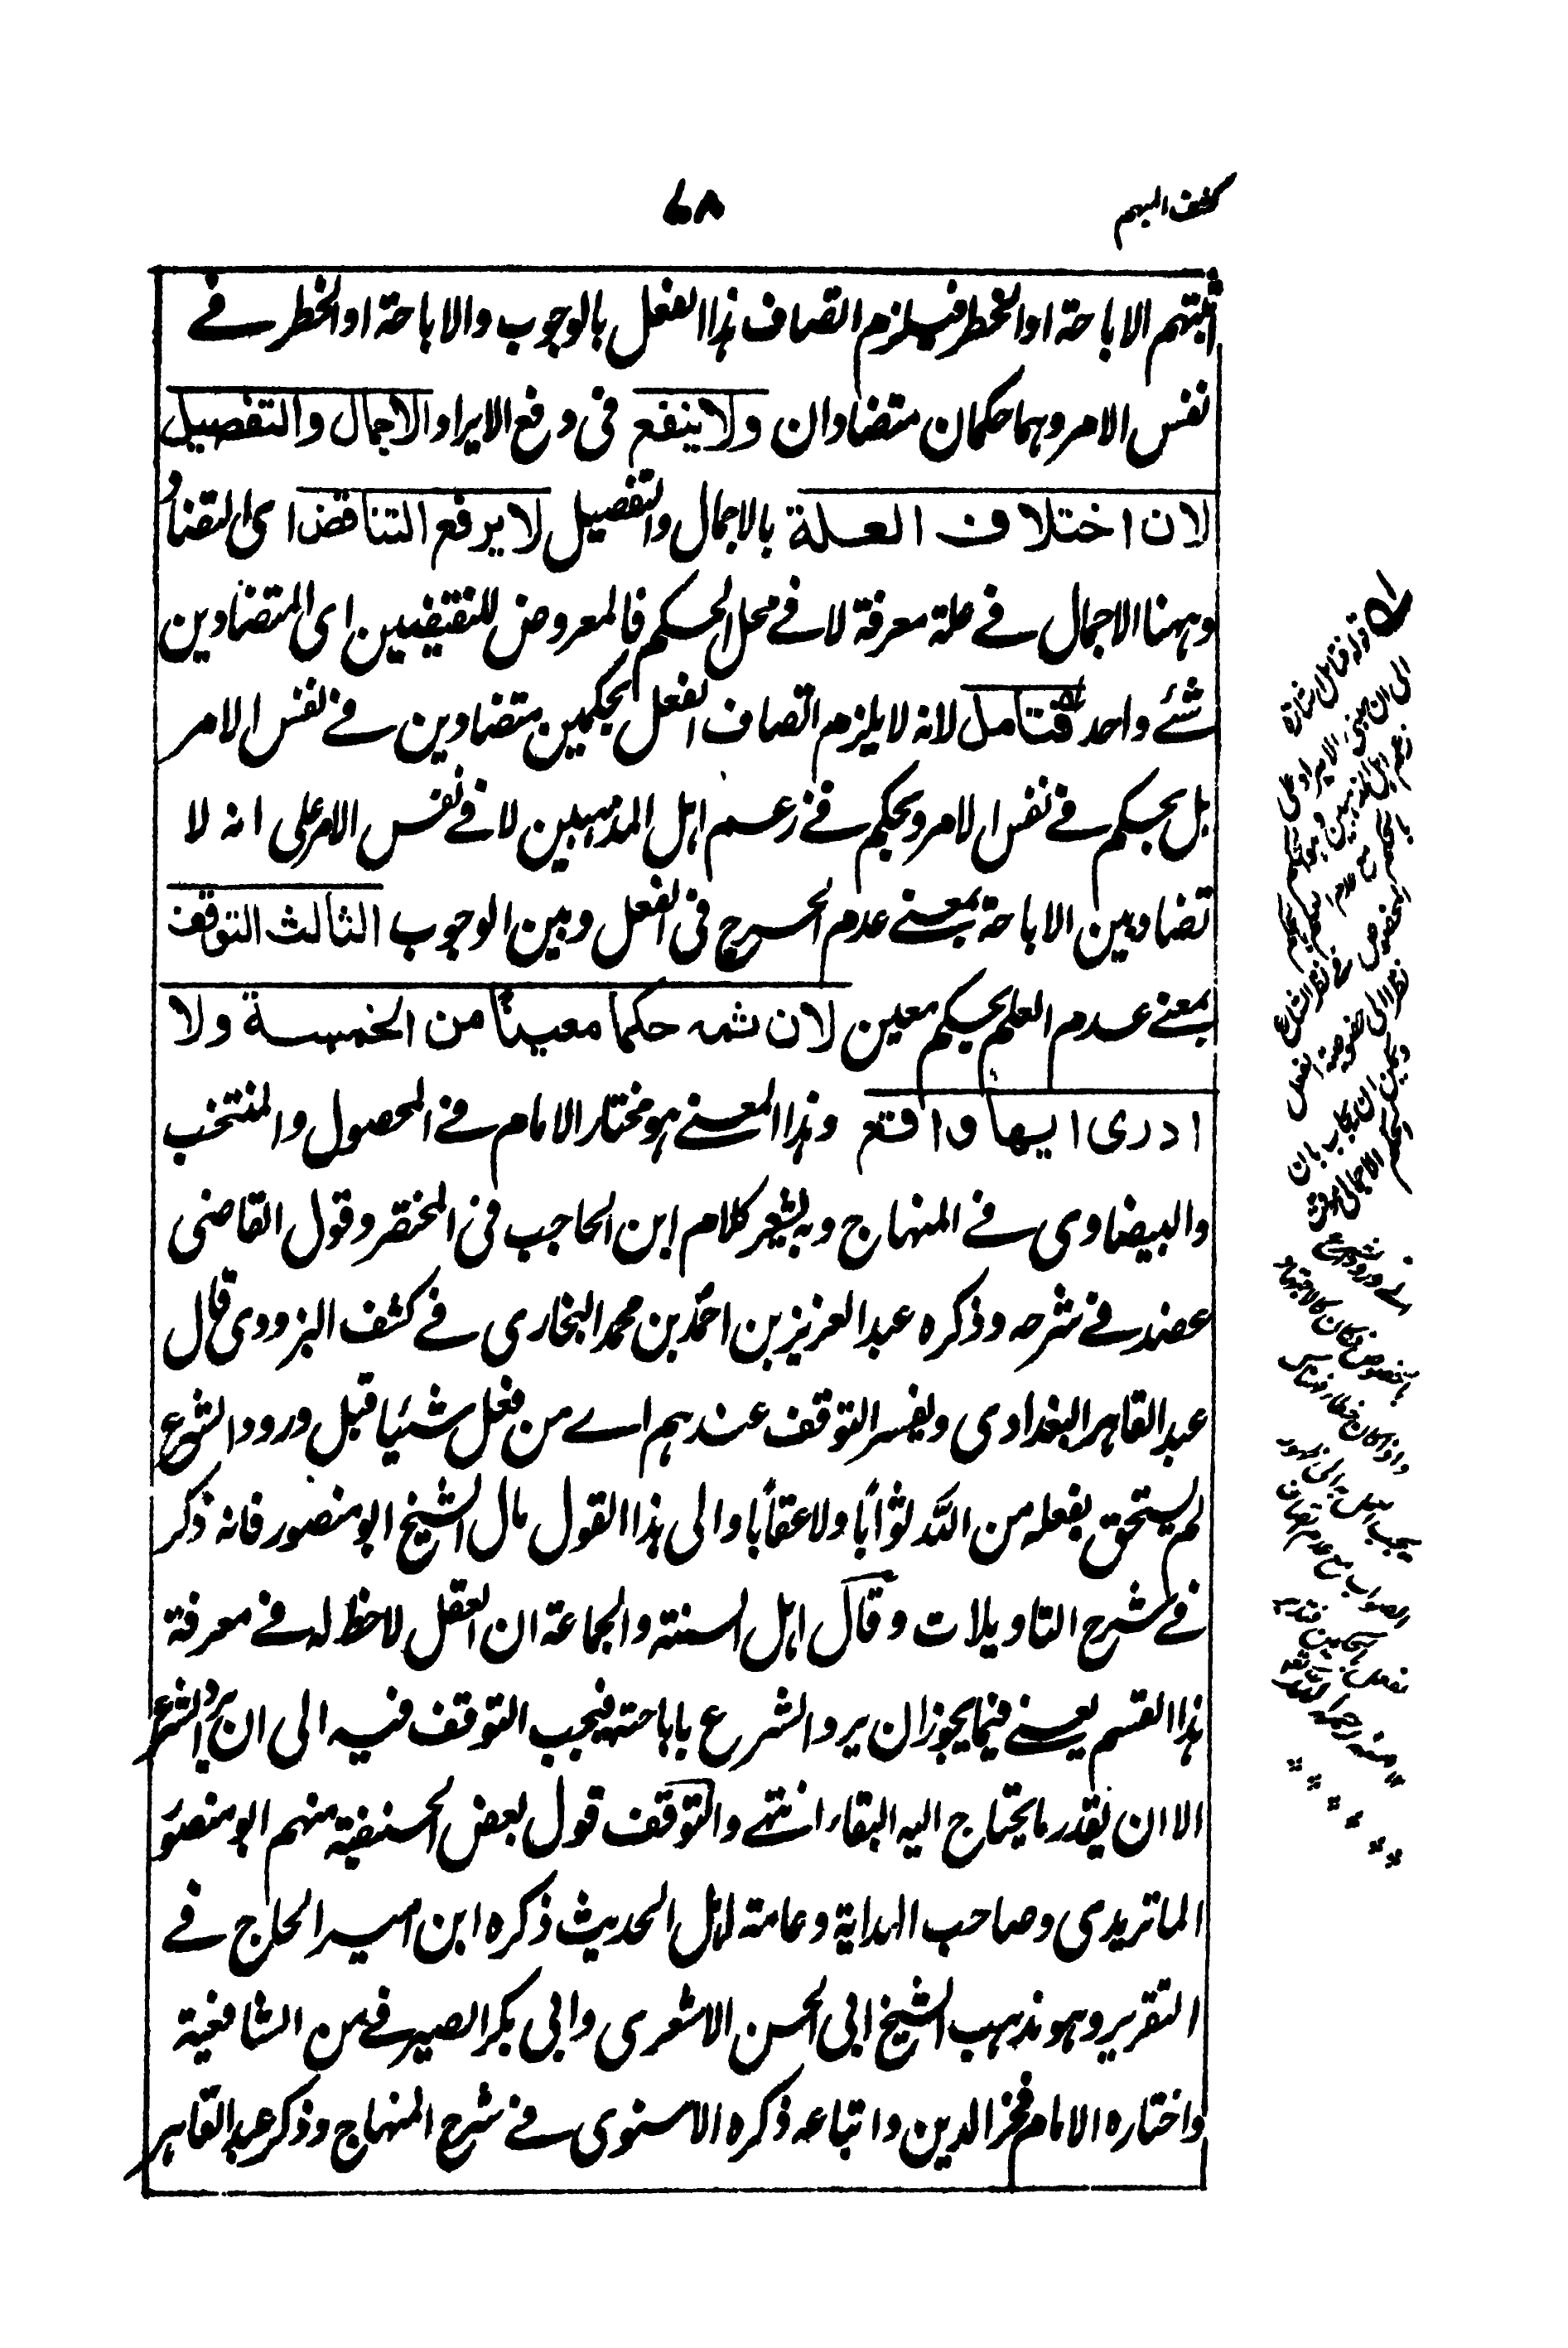 كشف المبهم
٦٨
اثبتهم الاباحة او الخطر فيلزم اتصاف هذا الفعل بالوجوب والاباحة او الخطر في
نفس الامر وهما حكمان متضادان ولا ينفع في دفع الايراد الاجمال والتفصيل
لان اختلاف العلة بالاجمال والتفصيل لا يرفع التناقض اى التضاد
وههنا الاجمال في علة معرفة لا في محل الحكم فالمعروض للنقيضين اى المتضادين
شئ واحد فتامل لانه لا يلزم اتصاف الفعل بحكمين متضادين في نفس الامر
بل بحكم في نفس الامر وبحكم في زعم اهل المذهبين لا في نفس الامر على انه لا
تضاد بين الاباحة بمعنى عدم الحرج في الفعل وبين الوجوب الثالث التوقف
بمعنى عدم العلم بحكم معين لان ثمه حكما معينا من الخمسة ولا
ادرى ايها واقع وهذا المعنى هو مختار الامام في المحصول والمنتخب
والبيضاوى في المنهاج وبه يشعر كلام ابن الحاجب في المختصر وقول القاضى
عضد في شرحه وذكره عبد العزيز بن احمد بن محمد البخارى في كشف البزدوى قال
عبد القاهر البغدادى ويفسر التوقف عندهم اے من فعل شئيا قبل ورود الشرع
لم يستحق بفعله من الله ثوابا ولا عقابا والى هذا القول مال الشيخ ابو منصور فانه ذكر
في شرح التاويلات وقال اهل السنة والجماعة ان العقل لاحظ له في معرفة
هذا القسم يعنى فيما يجوز ان يرد الشرع باباحته فيجب التوقف فيه الى ان يرد الشرع
الا ان يقدر ما يحتاج اليه البقاء انتهى والتوقف قول بعض الحنفية منهم ابو منصور
الماتريدى وصاحب الهداية وعامة اهل الحديث ذكره ابن امير الحاج في
التقرير وهو مذهب الشيخ ابى الحسن الاشعرى وابى بكر الصيرفى من الشافعية
واختاره الامام فخر الدين واتباعه ذكره الاسنوى في شرح المنهاج وذكر عبد القاهر
قوله فتامل اشارة
الى ان مبنى الايراد على
زعم اهل المذهبين وهو الحكم
نظرا الى خصوصية الفعل
ويمكن ان يجاب بان
الحكم الاجمالى موقوف
منه رحمه الله